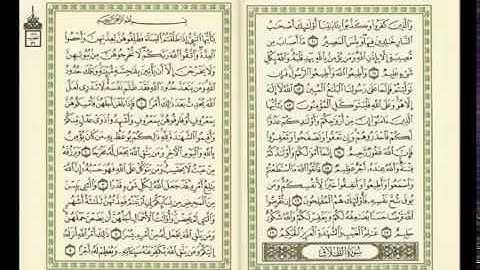 والذين كفروا وكذبوا بـٔايتنا أولئك أصحب
النار خلدين فيها وبئس المصير ١٠ ما أصاب من
مصيبة إلا بإذن الله ومن يؤمن بالله يهد قلبه والله بكل
شىء عليم ١١ وأطيعوا الله وأطيعوا الرسول فإن
توليتم فإنما على رسولنا البلغ المبين ١٢ الله لا إله
إلا هو وعلى الله فليتوكل المؤمنون ١٣ يأيها
الذين ءامنوا إن من أزوجكم وأولدكم عدوا
لكم فاحذروهم وإن تعفوا وتصفحوا وتغفروا
فإن الله غفور رحيم ١٤ إنما أمولكم وأولدكم
فتنة والله عنده أجر عظيم ١٥ فاتقوا الله ما استطعتم
واسمعوا وأطيعوا وأنفقوا خيرا لأنفسكم ومن
يوق شح نفسه فأولئك هم المفلحون ١٦ إن تقرضوا
الله قرضا حسنا يضعفه لكم ويغفر لكم والله شكور
حليم ١٧ علم الغيب والشهدة العزيز الحكيم ١٨
سورة الطلاق
بسم الله الرحمن الرحيم
يأيها النبى إذا طلقتم النساء فطلقوهن لعدتهن وأحصوا
العدة واتقوا الله ربكم لا تخرجوهن من بيوتهن
ولا يخرجن إلا أن يأتين بفحشة مبينة وتلك حدود
الله ومن يتعد حدود الله فقد ظلم نفسه لا تدرى لعل
الله يحدث بعد ذلك أمرا ١ فإذا بلغن أجلهن فأمسكوهن
بمعروف أو فارقوهن بمعروف وأشهدوا ذوى عدل منكم
وأقيموا الشهدة لله ذلكم يوعظ به من كان يؤمن
بالله واليوم الءاخر ومن يتق الله يجعل له مخرجا ٢ ويرزقه من
حيث لا يحتسب ومن يتوكل على الله فهو حسبه إن الله
بلغ أمره قد جعل الله لكل شىء قدرا ٣ والـٔى يئسن
من المحيض من نسائكم إن ارتبتم فعدتهن ثلثة أشهر
والـٔى لم يحضن وأولت الأحمال أجلهن أن يضعن حملهن
ومن يتق الله يجعل له من أمره يسرا ٤ ذلك أمر الله أنزله
إليكم ومن يتق الله يكفر عنه سيـٔاته ويعظم له أجرا ٥